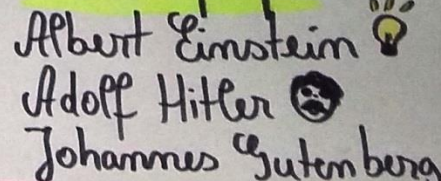 Albert Einstein
Adolf Hitler
Johannes Gutenberg